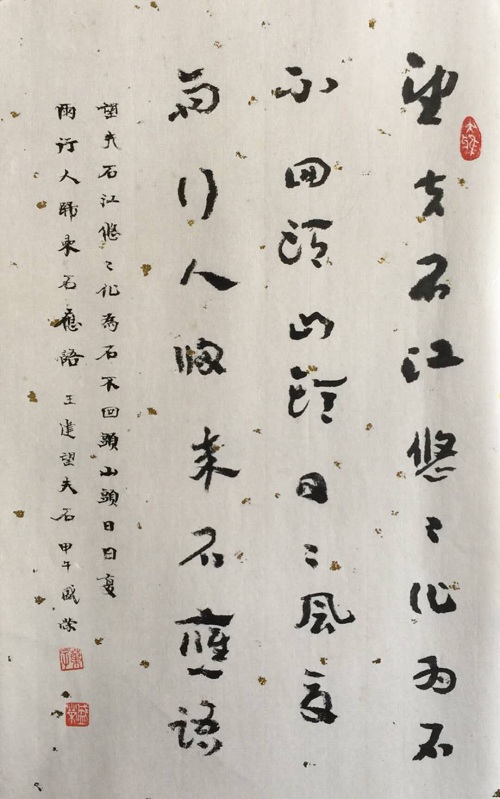 望夫石江悠〻化为石
不回頭山頭日〻風复
雨行人歸来石應語
望夫石江悠〻化為石不回頭山頭日日复
雨行人歸來石應語 王建望夫石 甲午盛荣